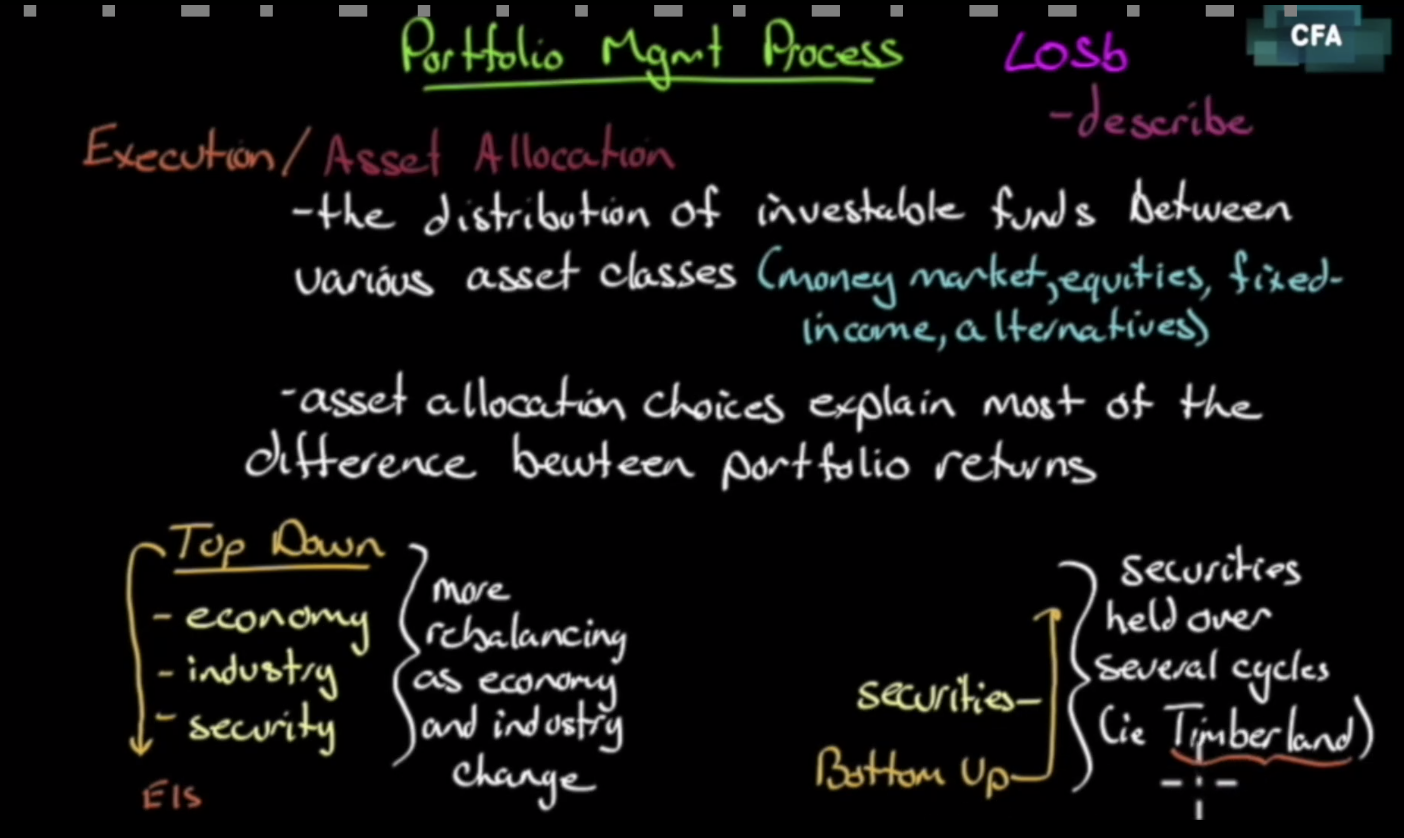 Portfolio Mgmt Process
LOSb
CFA
-describe
Execution/Asset Allocation
-the distribution of investable funds between
various asset classes (money market, equities, fixed-
income, alternatives)
-asset allocation choices explain most of the
difference bewteen portfolio returns
Top Down
- economy
- industry
- security
EIS
more
rebalancing
as economy
and industry
change
securities-
Bottom Up
securities
held over
several cycles
(ie Timberland)